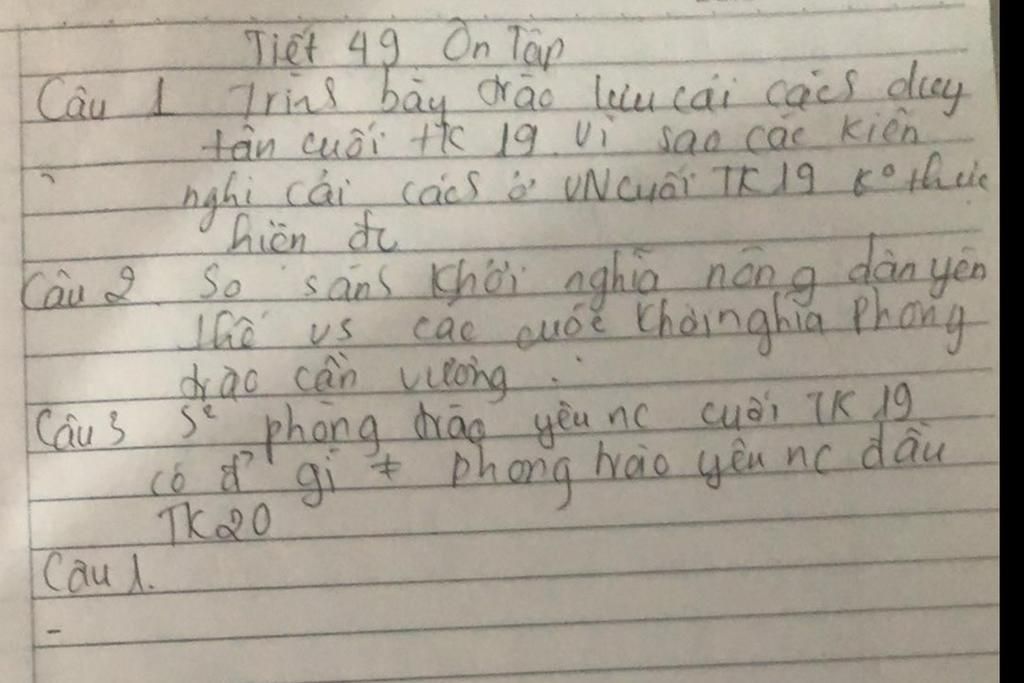 Tiết 49 Ôn Tập
Câu 1 Trins bày trào lưu cải cács duy
tân cuối tk 19 vì sao các kiến
nghị cải cács ở VN cuối TK 19 ko thực
hiện đc
Câu 2. So sáns khởi nghĩa nông dân yên
thế vs các cuộc khởi nghĩa Phong
trào cần vương.
Câu 3 S² phong trào yêu nc cuối TK 19
có đ² gì ≠ phong trào yêu nc đầu
TK 20
Câu 1.
-